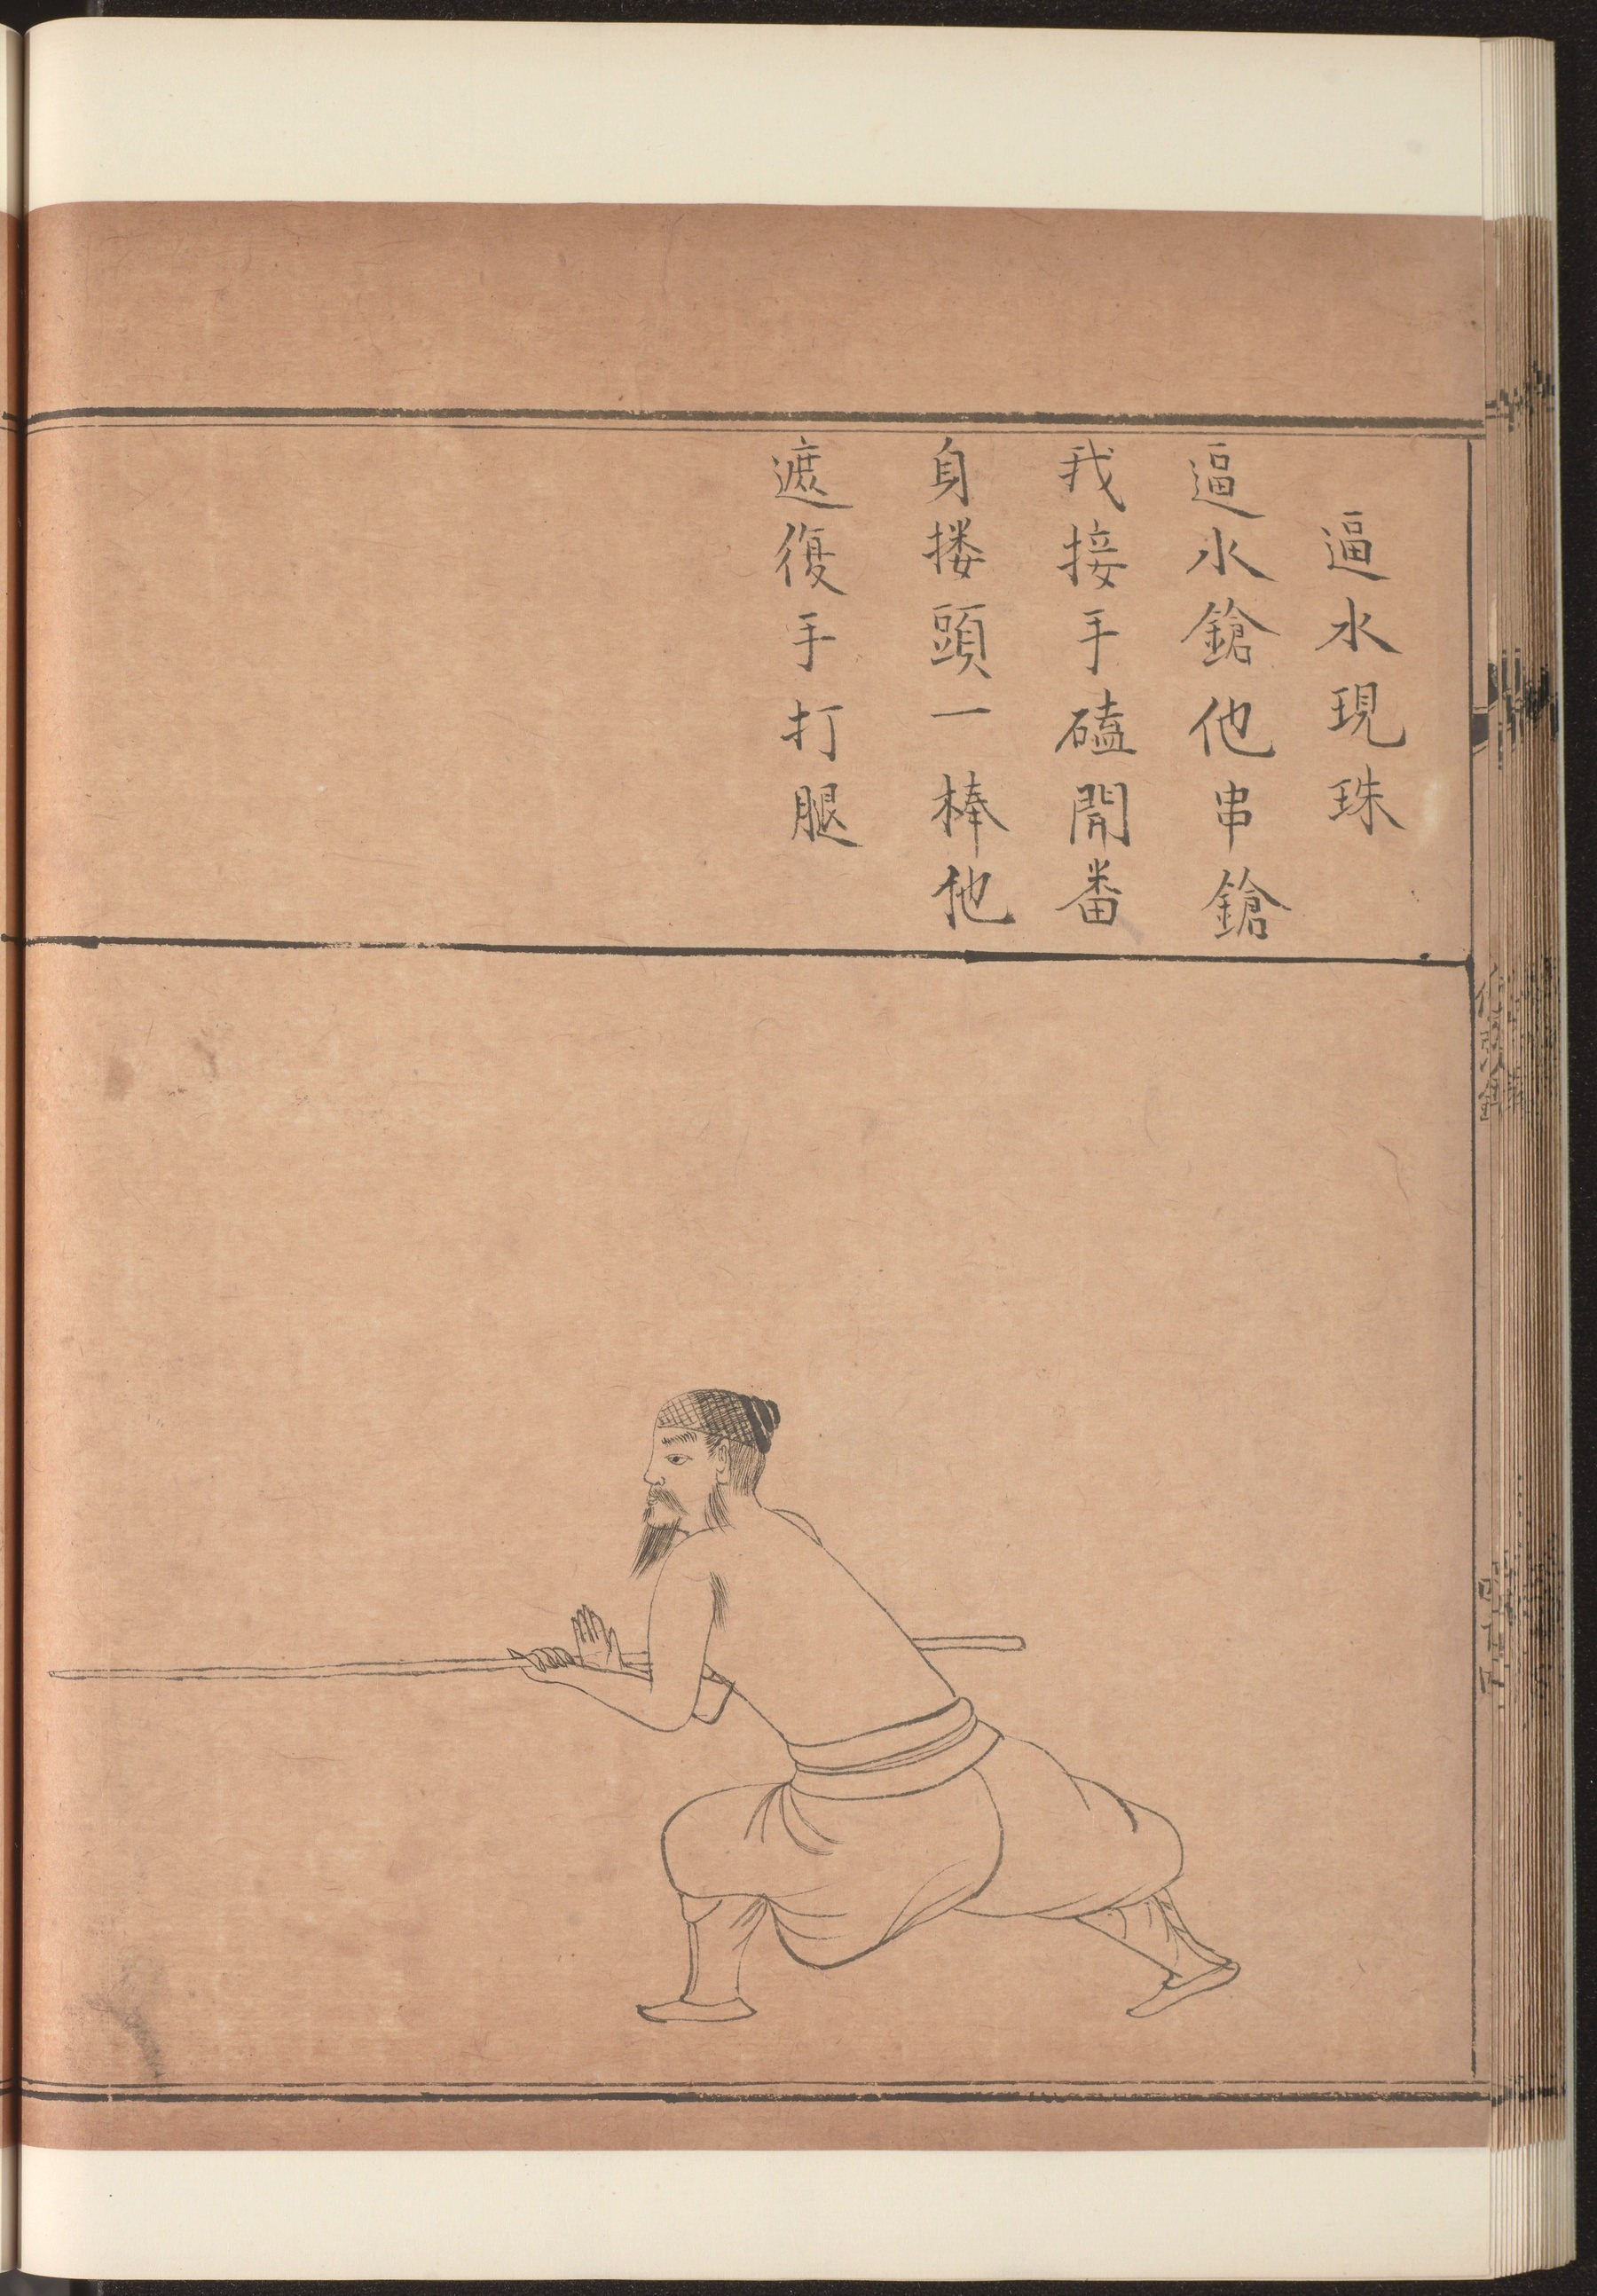 逼水現珠
逼水鎗他串鎗
我接手磕開番
身搂頭一棒他
遮復手打腿